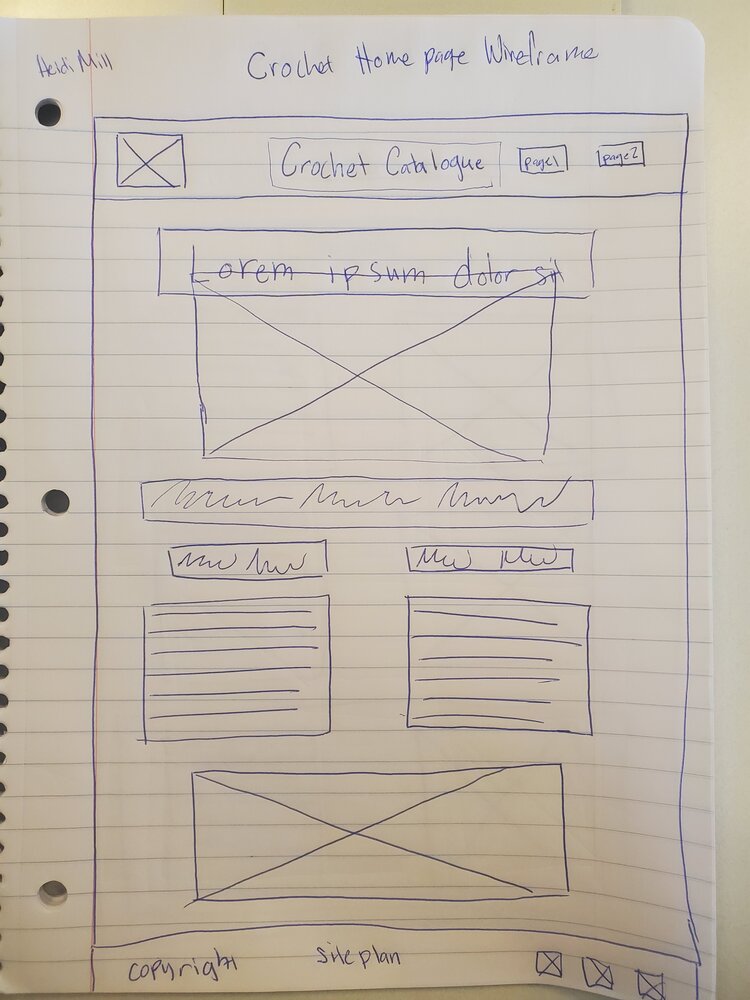 Heidi Mill
Crochet Home page Wireframe
Crochet Catalogue
page1
page2
Lorem ipsum dolor sit
copyright
site plan